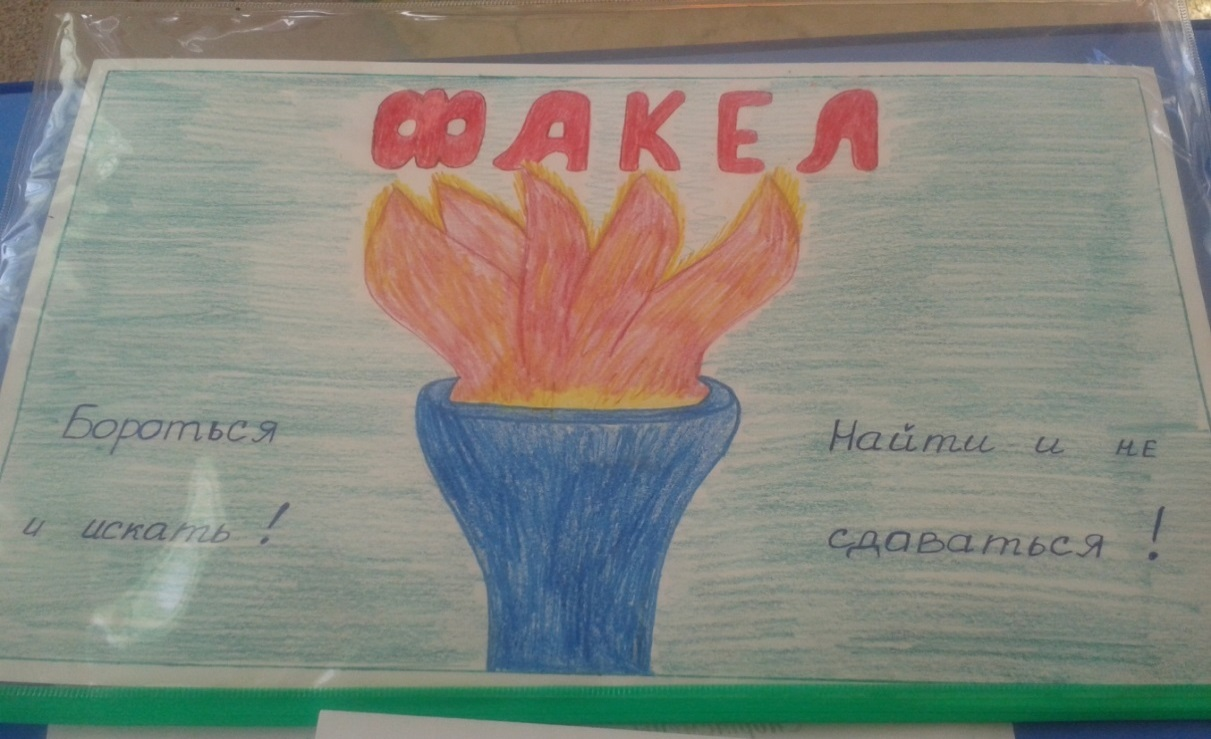 ФАКЕЛ
Бороться
и искать!
Найти и не
сдаваться!